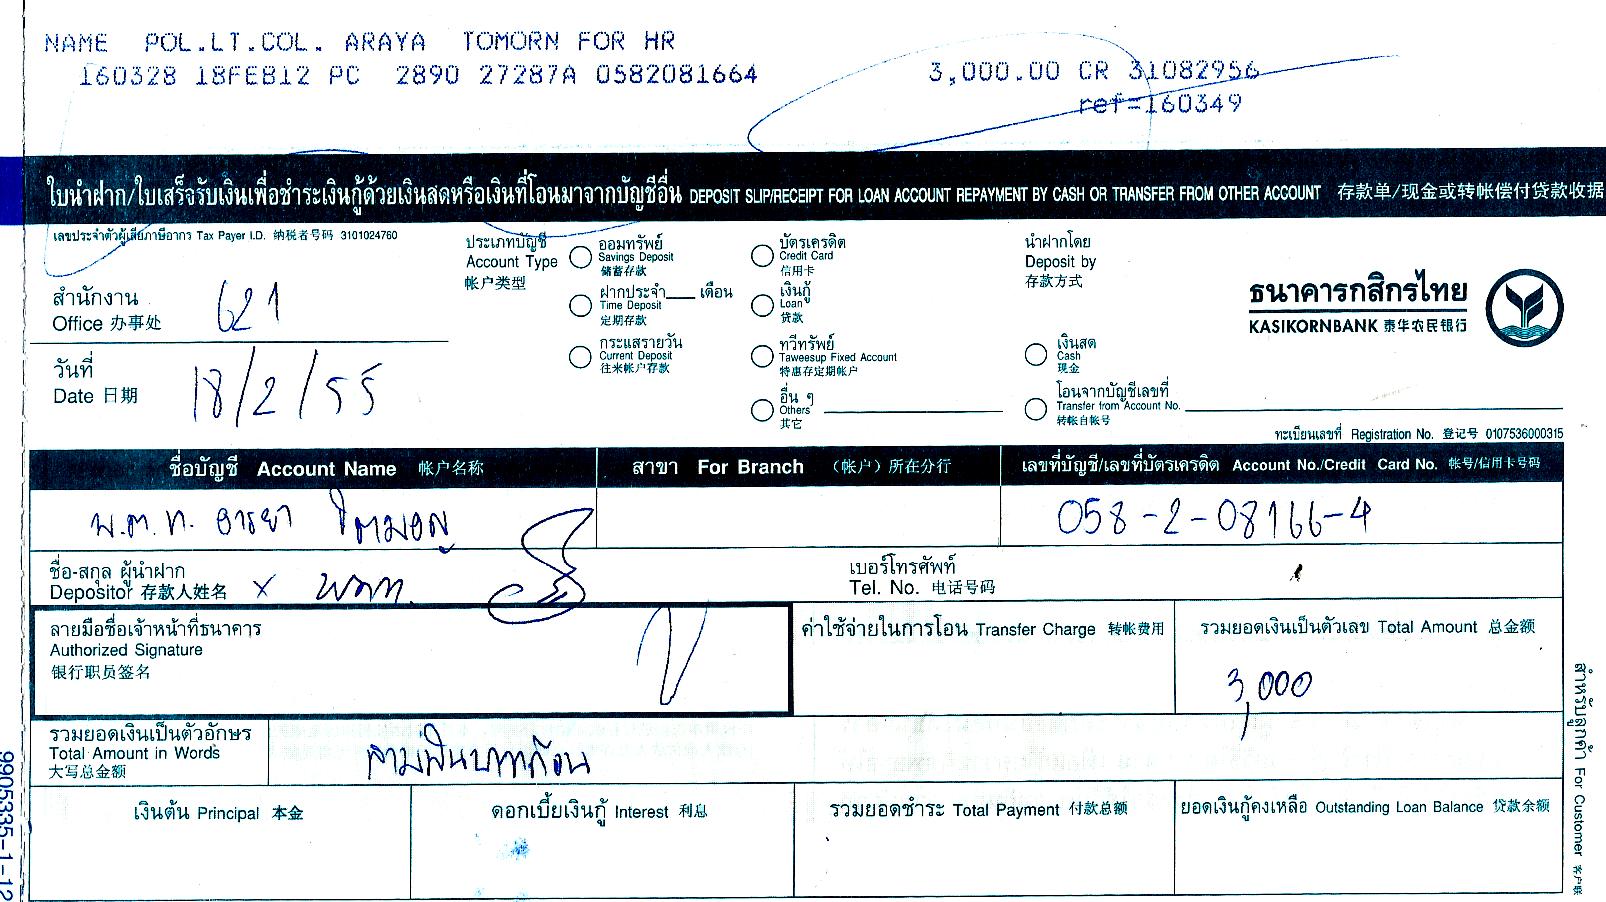 NAME POL.LT.COL. ARAYA TOMORN FOR HR
160328 18FEB12 PC 2890 27287A 0582081664 3,000.00 CR 31082956
ref=160349
ใบนำฝาก/ใบเสร็จรับเงินเพื่อชำระเงินกู้ด้วยเงินสดหรือเงินที่โอนมาจากบัญชีอื่น DEPOSIT SLIP/RECEIPT FOR LOAN ACCOUNT REPAYMENT BY CASH OR TRANSFER FROM OTHER ACCOUNT 存款单/现金或转帐偿付贷款收据
เลขประจำตัวผู้เสียภาษีอากร Tax Payer I.D. 纳税者号码 3101024760
สำนักงาน
Office 办事处
621
วันที่
Date 日期
18/2/55
ประเภทบัญชี
Account Type
帐户类型
ออมทรัพย์
Savings Deposit
储蓄存款
ฝากประจำ____ เดือน
Time Deposit
定期存款
กระแสรายวัน
Current Deposit
往来帐户存款
บัตรเครดิต
Credit Card
信用卡
เงินกู้
Loan
贷款
ทวีทรัพย์
Taweesup Fixed Account
特惠存定期帐户
อื่น ๆ
Others
其它
นำฝากโดย
Deposit by
存款方式
เงินสด
Cash
现金
โอนจากบัญชีเลขที่
Transfer from Account No.
转帐自帐号
ธนาคารกสิกรไทย
KASIKORNBANK 泰华农民银行
ทะเบียนเลขที่ Registration No. 登记号 0107536000315
ชื่อบัญชี Account Name 帐户名称
สาขา For Branch （帐户）所在分行
เลขที่บัญชี/เลขที่บัตรเครดิต Account No./Credit Card No. 帐号/信用卡号码
พ.ต.ท. อารยา
058-2-08166-4
ชื่อ-สกุล ผู้นำฝาก
Depositor 存款人姓名 x
เบอร์โทรศัพท์
Tel. No. 电话号码
ลายมือชื่อเจ้าหน้าที่ธนาคาร
Authorized Signature
银行职员签名
ค่าใช้จ่ายในการโอน Transfer Charge 转帐费用
รวมยอดเงินเป็นตัวเลข Total Amount 总金额
3,000
รวมยอดเงินเป็นตัวอักษร
Total Amount in Words
大写总金额
สามพันบาทถ้วน
เงินต้น Principal 本金
ดอกเบี้ยเงินกู้ Interest 利息
รวมยอดชำระ Total Payment 付款总额
ยอดเงินกู้คงเหลือ Outstanding Loan Balance 贷款余额
สำหรับลูกค้า For Customer 客户联
9905335-1-12